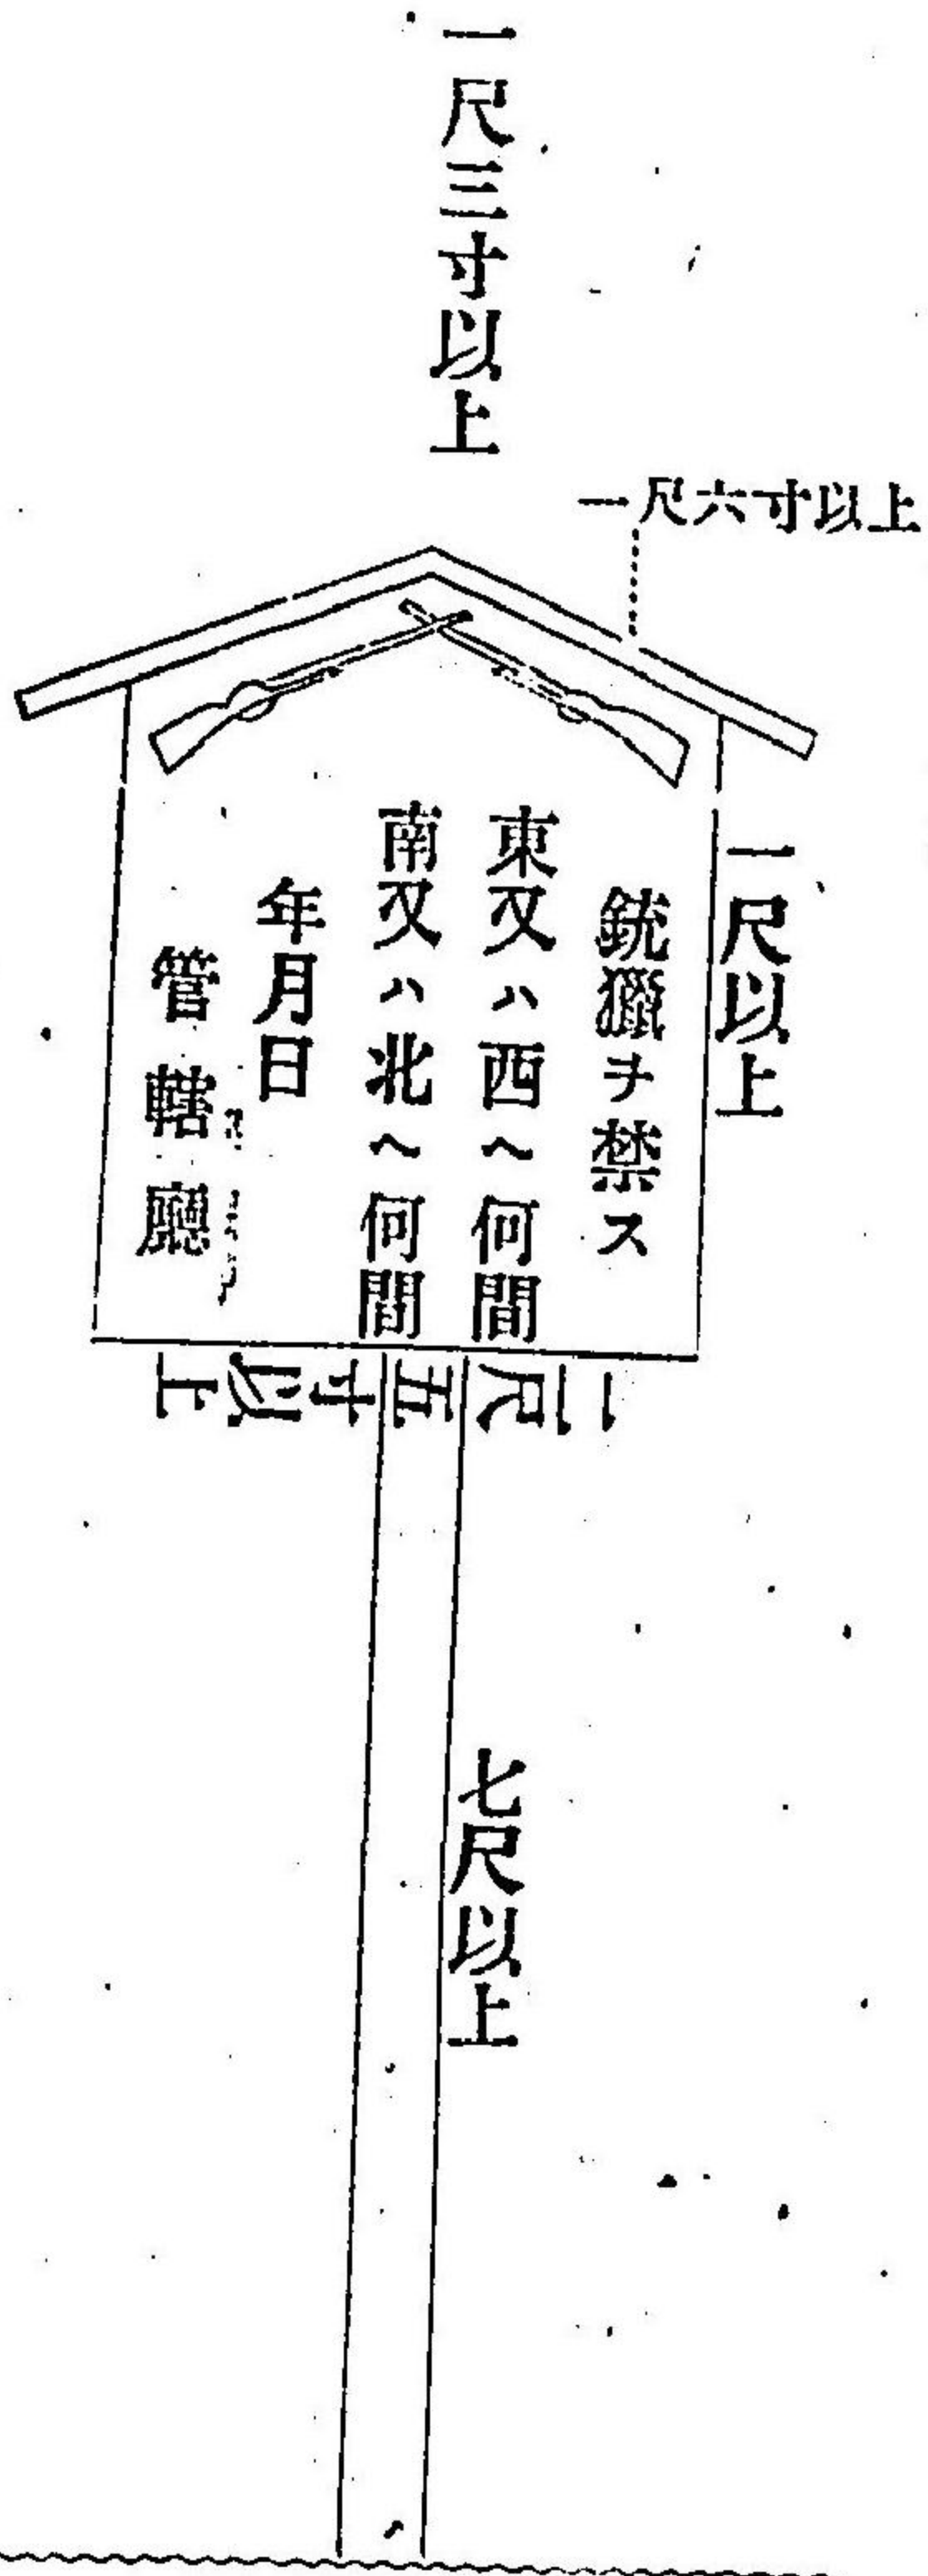 一尺三寸以上
一尺六寸以上
一尺以上
銃獵ヲ禁ス
東又ハ西ヘ何間
南又ハ北ヘ何間
年月日
管轄廳
二尺五寸以上
七尺以上